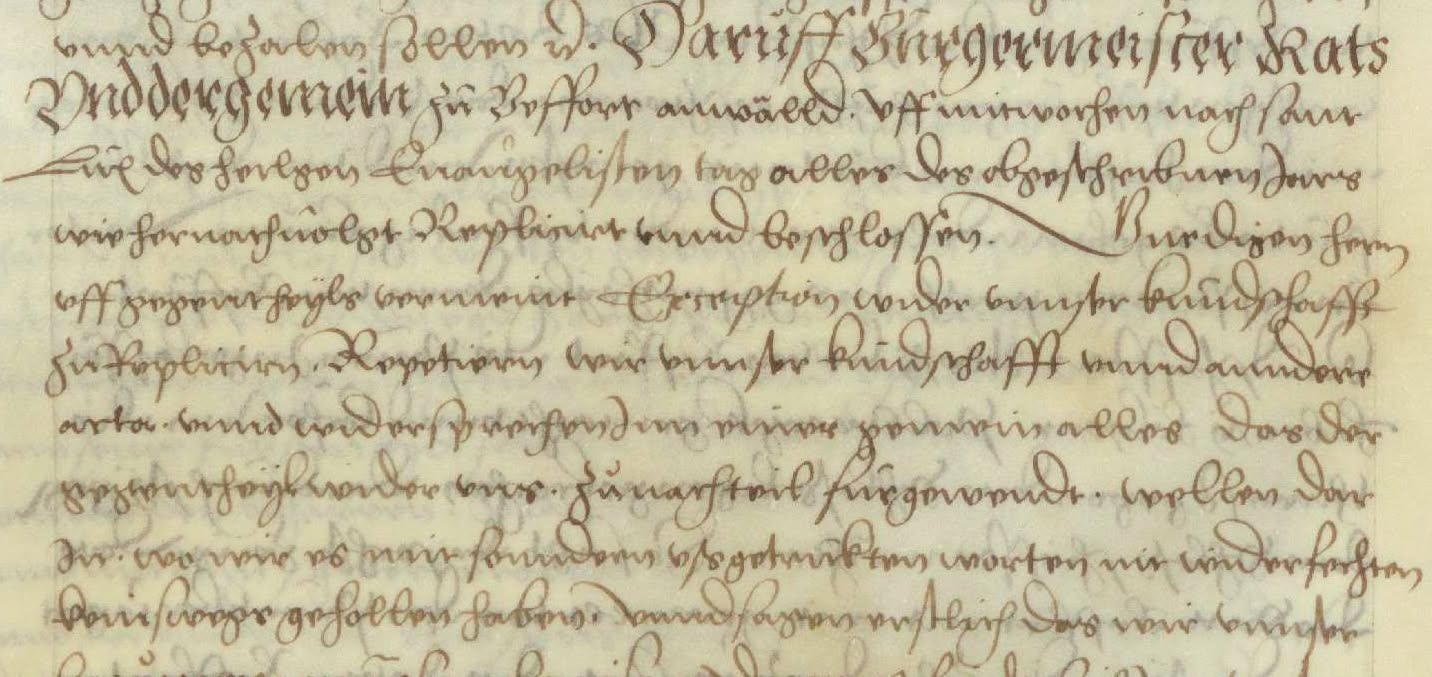 vnnd bezalen sollen ꝛc. Daruff Burgermeister Rats
Vnd der gemein zů Beffort anwälld. vff mitwochen nach sant
Lux des heilgen Euangelisten tag alles des obgeschribnen Jars
wie hernachuolgt Replicirt vnnd beschlossen. Wurdigen hern
vff gegentheyls vermeint Exception wider vnnser kundschafft
zů Replicirn. Repetiern wir vnnser kundschafft vnnd anndere
acta. vnnd widersprechen Inn einer gemein alles das der
gegentheyl wider vns. zů nachteil furgewendt. wellen dar
In. wo wir es mit sonndern vssgetruckten worten nit widerfechten
keinswegs gehollen haben. vnnd sagen erstlich das wir vnnser